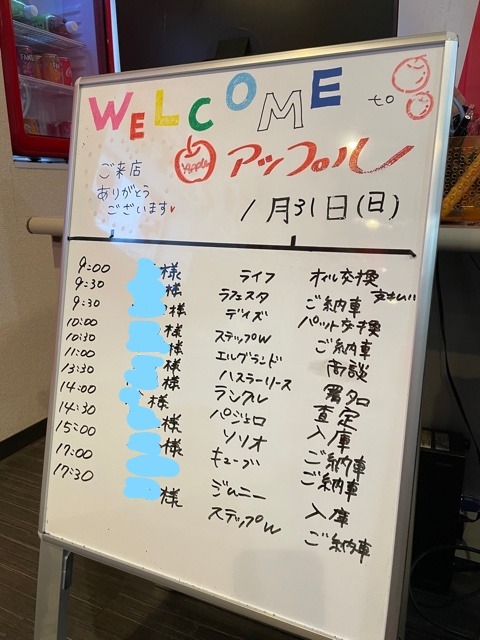 WELCOME to
Apple アップル
ご来店
ありがとう
ございます♥
1月31日(日)
9:00 様 ライフ オイル交換 支払い
9:30 様 ラフェスタ ご納車
9:30 様 デイズ パット交換
10:00 様 ステップW ご納車
10:30 様 エルグランド 商談
11:00 様 ハスラーリース 署名
13:30 様 ラングレ 査定
14:00 様 パジェロ 入庫
14:30 様 ソリオ ご納車
15:00 様 キューブ ご納車
17:00 ジムニー 入庫
17:30 様 ステップW ご納車